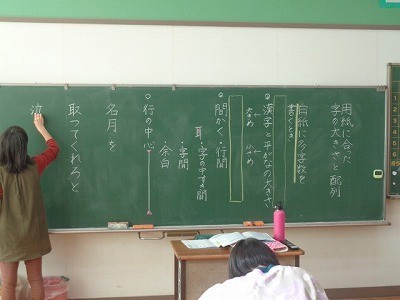 用紙に合った
字の大きさと配列
白紙に多字数を
書くとき
漢字と平がなの大きさ
大きめ 小さめ
間かく・行間
・字間
・余白
行の中心
名月を
取ってくれろと
泣